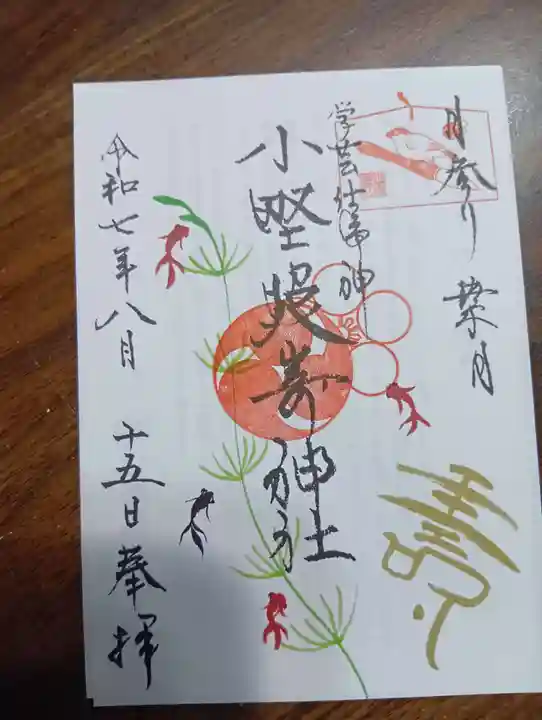 月参り 葉月
学芸信奉神
小野照崎神社
寿
令和七年八月 十五日奉拝